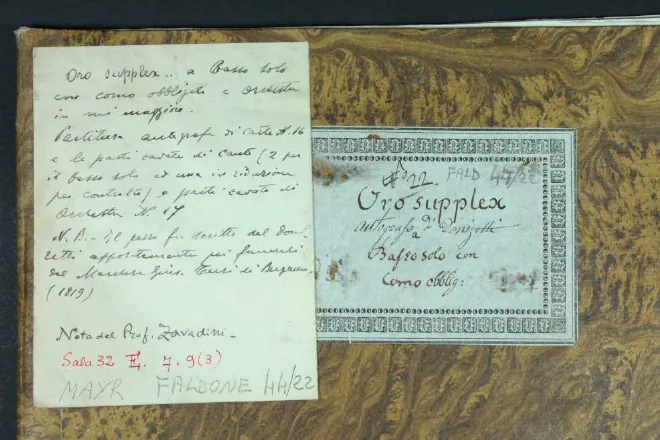 Oro supplex... a Basso solo
con corno obbligato e Orchestra
in mi maggiore.
Partitura autografa di carte N. 16
e le parti cavate di canto (2 per
il basso solo ed una in riduzione
per contralto) e parti cavate di
Orchestra N. 17
N. B. - Il pezzo fu scritto dal Doni-
zetti appositamente pei funerali
del Marchese Gius. Terzi di Bergamo
(1819)
Nota del Prof. Zavadini -
Sala 32 E. 7. 9 (3)
MAYR FALDONE 44/22
No 22. FALD 44/22
Oro supplex
autografo di Donizetti
a
Basso solo con
Corno obblig: